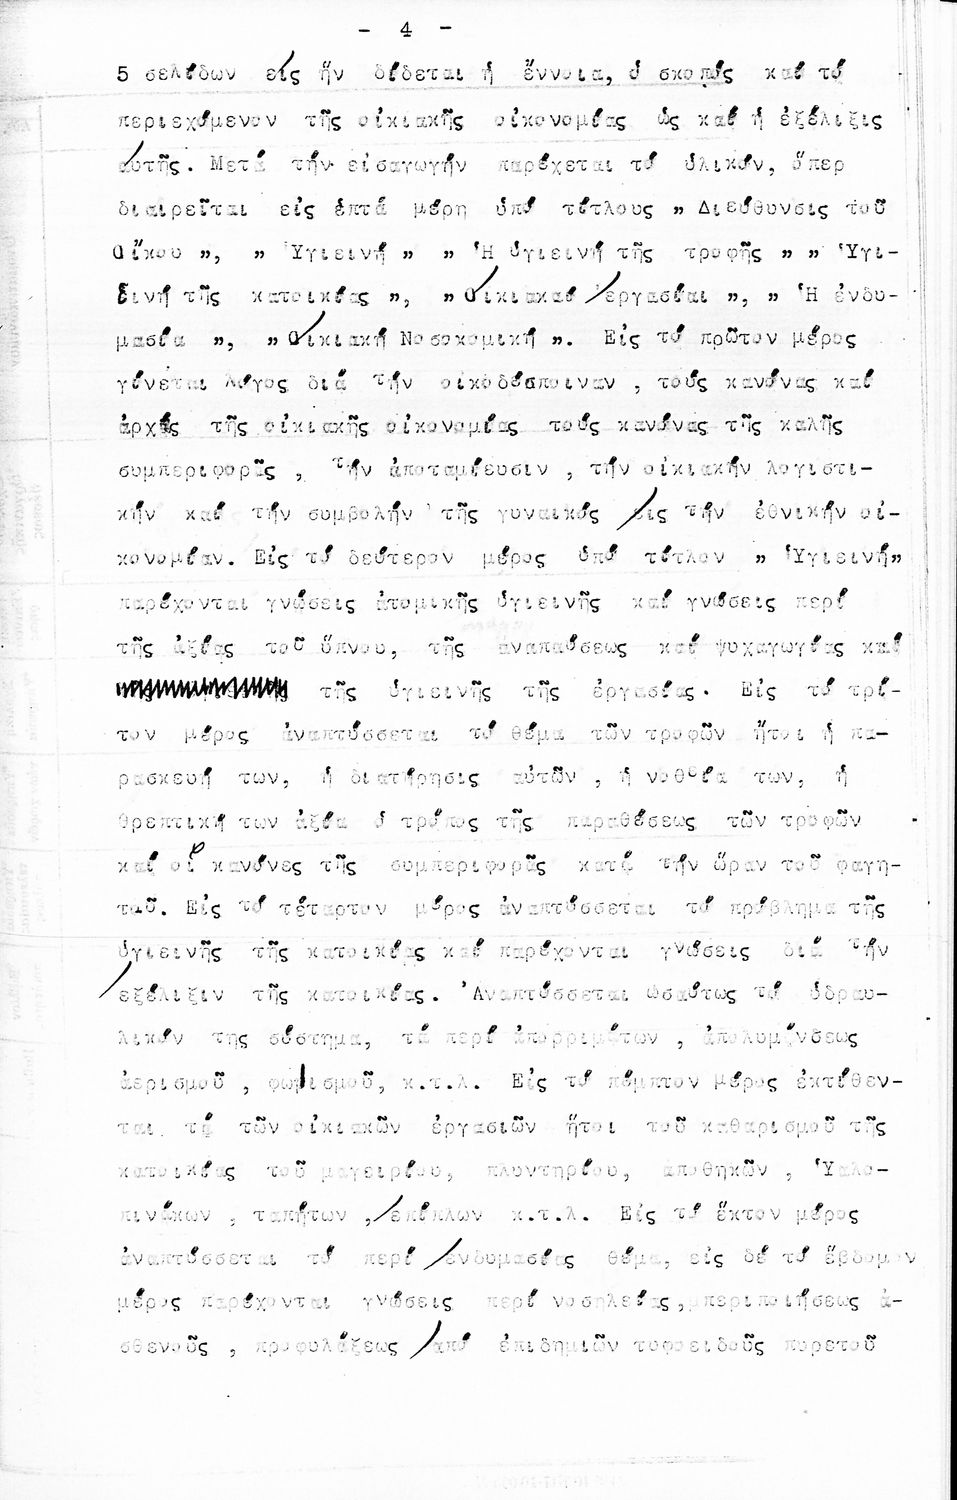 - 4 -
5 σελίδων εἰς ἥν δίδεται ἡ ἔννοια, ὁ σκοπός καί τό
περιεχόμενον τῆς οἰκιακῆς οἰκονομίας ὡς καί ἡ ἐξέλιξις
αὐτῆς. Μετά τήν εἰσαγωγήν παρέχεται τό ὑλικόν, ὅπερ
διαιρεῖται εἰς ἑπτά μέρη ὑπό τίτλους „ Διεύθυνσις τοῦ
Οἴκου „, „ Ὑγιεινή „ „ Ἡ ὑγιεινή τῆς τροφῆς „ „ Ὑγι-
εινή τῆς κατοικίας „, „ Οἰκιακαί ἐργασίαι „, „ Ἡ ἐνδυ-
μασία „, „ Οἰκιακή Νοσοκομική „. Εἰς τό πρῶτον μέρος
γίνεται λόγος διά τήν οἰκοδέσποιναν , τούς κανόνας καί
ἀρχάς τῆς οἰκιακῆς οἰκονομίας τούς κανόνας τῆς καλῆς
συμπεριφορᾶς , τήν ἀποταμίευσιν , τήν οἰκιακήν λογιστι-
κήν καί τήν συμβολήν τῆς γυναικός εἰς τήν ἐθνικήν οἰ-
κονομίαν. Εἰς τό δεύτερον μέρος ὑπό τίτλον „ Ὑγιεινή„
παρέχονται γνώσεις ἀτομικῆς ὑγιεινῆς καί γνώσεις περί
τῆς ἀξίας τοῦ ὕπνου, τῆς ἀναπαύσεως καί ψυχαγωγίας καί
τῆς ὑγιεινῆς τῆς ἐργασίας. Εἰς τό τρί-
τον μέρος ἀναπτύσσεται τό θέμα τῶν τροφῶν ἤτοι ἡ πα-
ρασκευή των, ἡ διατήρησις αὐτῶν , ἡ νοθεία των, ἡ
θρεπτική των ἀξία ὁ τρόπος τῆς παραθέσεως τῶν τροφῶν
καί οἱ κανόνες τῆς συμπεριφορᾶς κατά τήν ὥραν τοῦ φαγη-
τοῦ. Εἰς τό τέταρτον μέρος ἀναπτύσσεται τό πρόβλημα τῆς
ὑγιεινῆς τῆς κατοικίας καί παρέχονται γνώσεις διά τήν
ἐξέλιξιν τῆς κατοικίας. Ἀναπτύσσεται ὡσαύτως τό ὑδραυ-
λικόν της σύστημα, τά περί ἀπορριμάτων , ἀπολυμάνσεως
ἀερισμοῦ , φωτισμοῦ, κ.τ.λ. Εἰς τό πέμπτον μέρος ἐκτίθεν-
ται τά τῶν οἰκιακῶν ἐργασιῶν ἤτοι τοῦ καθαρισμοῦ τῆς
κατοικίας τοῦ μαγειρίου, πλυντηρίου, ἀποθηκῶν , Ὑαλο-
πινάκων , ταπήτων , ἐπίπλων κ.τ.λ. Εἰς τό ἕκτον μέρος
ἀναπτύσσεται τό περί ἐνδυμασίας θέμα, εἰς δέ τό ἕβδομον
μέρος παρέχονται γνώσεις περί νοσηλείας, περιποιήσεως ἀ-
σθενοῦς , προφυλάξεως ἀπό ἐπιδημιῶν τυφοειδοῦς πυρετοῦ